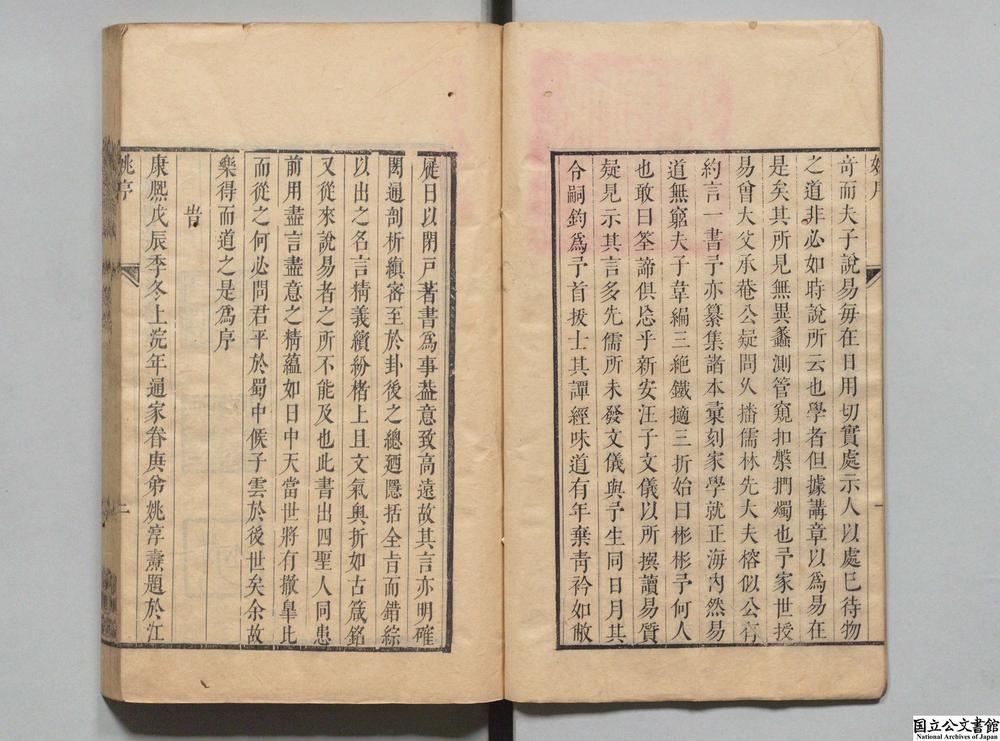 奇而夫子說易每在日用切實處示人以處已待物
之道非必如時說所云也學者但據講章以爲易在
是矣其所見無異蠡測管窺扣槃捫燭也予家世授
易曾大父承菴公疑問久播儒林先大夫榕似公有
約言一書予亦纂集諸本彚刻家學就正海內然易
道無窮夫子韋編三絶鐵擿三折始曰彬彬予何人
也敢曰筌諦俱忘乎新安汪子文儀以所撰讀易質
疑見示其言多先儒所未發文儀與予生同日月其
令嗣鈞爲予首拔士其譚經味道有年棄青衿如敝
屣日以閉戸著書爲事葢意致高遠故其言亦明確
閎通剖析縝密至於卦後之總廻隱括全旨而錯綜
以出之名言精義繽紛楮上且文氣奧折如古箴銘
又從來說易者之所不能及也此書出四聖人同患
前用盡言盡意之精蘊如日中天當世將有撤臯比
而從之何必問君平於蜀中候子雲於後世矣余故
樂得而道之是爲序
旹
康熙戊辰季冬上浣年通家眷庚弟姚淳燾題於江
姚序
二
国立公文書館
National Archives of Japan